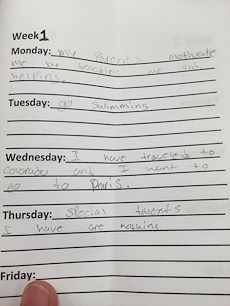 Week 1
Monday: my parents motivate
me by teaching me and
helping.
Tuesday: go swimming
Wednesday: I have traveled to
colorado and I want to
go to Paris.
Thursday: special talents
I have are nothing
Friday: